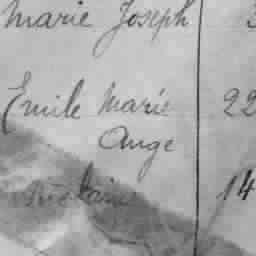 Marie Joseph 3
Emile Marie 22
Ange
14